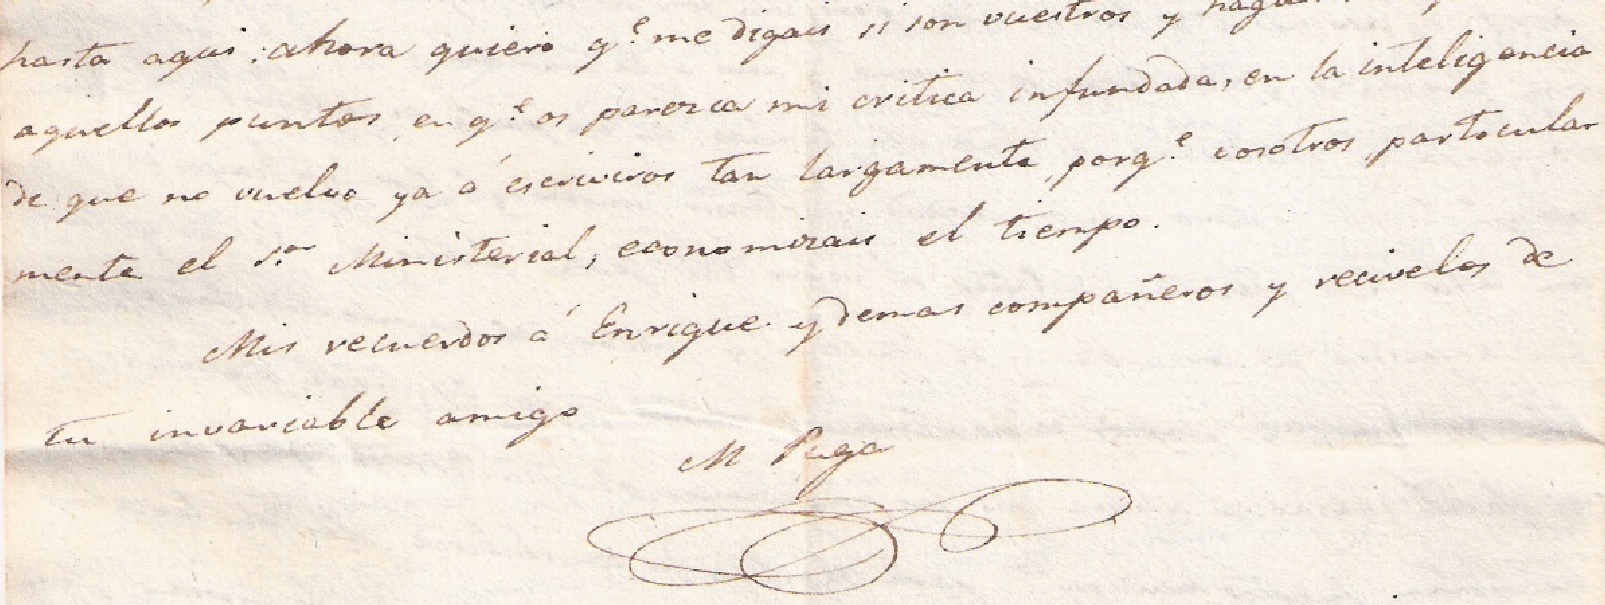 hasta aqui: ahora quiero q.e me digais si son vuestros y
aquellos puntos en q.e os parezca mi critica infundada, en la inteligencia
de que no vuelvo ya á escriviros tan largamente, porq.e vosotros particular
mente el S.or Ministerial, economizais el tiempo.
Mis recuerdos á Enrique y demas compañeros y recivelos de
tu invariable amigo
M Puga